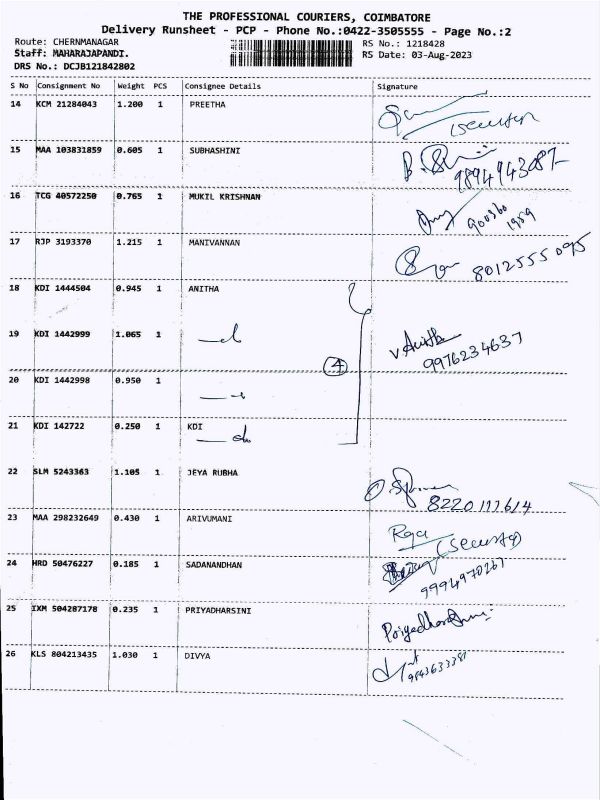 THE PROFESSIONAL COURIERS, COIMBATORE
Delivery Runsheet - PCP - Phone No.:0422-3505555 - Page No.:2
Route: CHERNMANAGAR RS No.: 1218428
Staff: MAHARAJAPANDI. RS Date: 03-Aug-2023
DRS No.: DCJB121842802
S No Consignment No Weight PCS Consignee Details Signature
14 KCM 21284043 1.200 1 PREETHA
15 MAA 103831859 0.605 1 SUBHASHINI
16 TCG 40572250 0.765 1 MUKIL KRISHNAN
17 RJP 3193370 1.215 1 MANIVANNAN
8012555095
18 KDI 1444504 0.945 1 ANITHA
19 KDI 1442999 1.065 1 V. Anitha
9976234637
4
20 KDI 1442998 0.950 1
21 KDI 142722 0.250 1 KDI
22 SLM 5243363 1.105 1 JEYA RUBHA
8220111614
23 MAA 298232649 0.430 1 ARIVUMANI
24 HRD 50476227 0.185 1 SADANANDHAN
9994970267
25 IXM 504287178 0.235 1 PRIYADHARSINI Priyadharsini
26 KLS 804213435 1.030 1 DIVYA